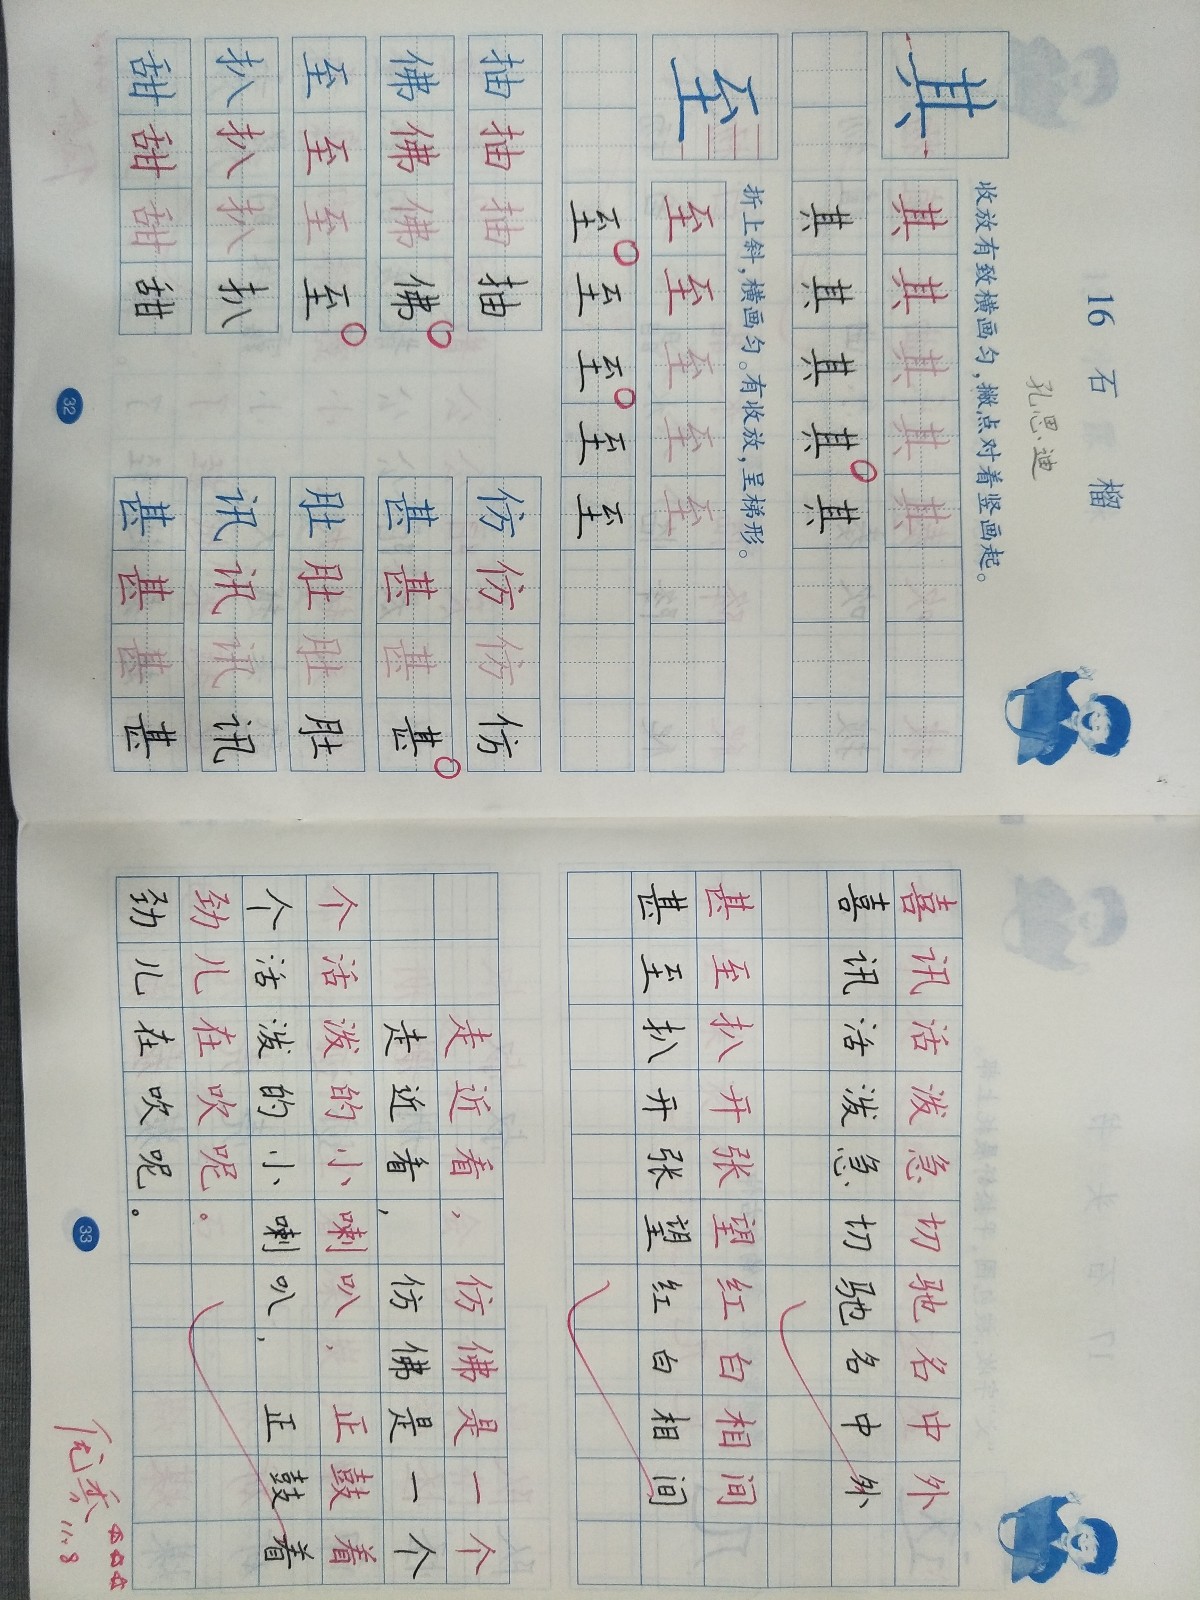 16 石榴
孔思迪
其
收放有致横画匀，撇点对着竖画起。
其其其其其
其其其其其
至
折上斜，横画匀。有收放，呈梯形。
至至至至至
至至至至至
抽抽抽抽
仿仿仿仿
佛佛佛佛
甚甚甚甚
至至至至
肚肚肚肚
扒扒扒扒
讯讯讯讯
甜甜甜甜
甚甚甚甚
32
喜讯活泼急切驰名中外
喜讯活泼急切驰名中外
甚至扒开张望红白相间
甚至扒开张望红白相间
走近看，仿佛是一个
走近看，仿佛是一个
个活泼的小喇叭，正鼓着
个活泼的小喇叭，正鼓着
劲儿在吹呢。
劲儿在吹呢。
33
优秀
11.8